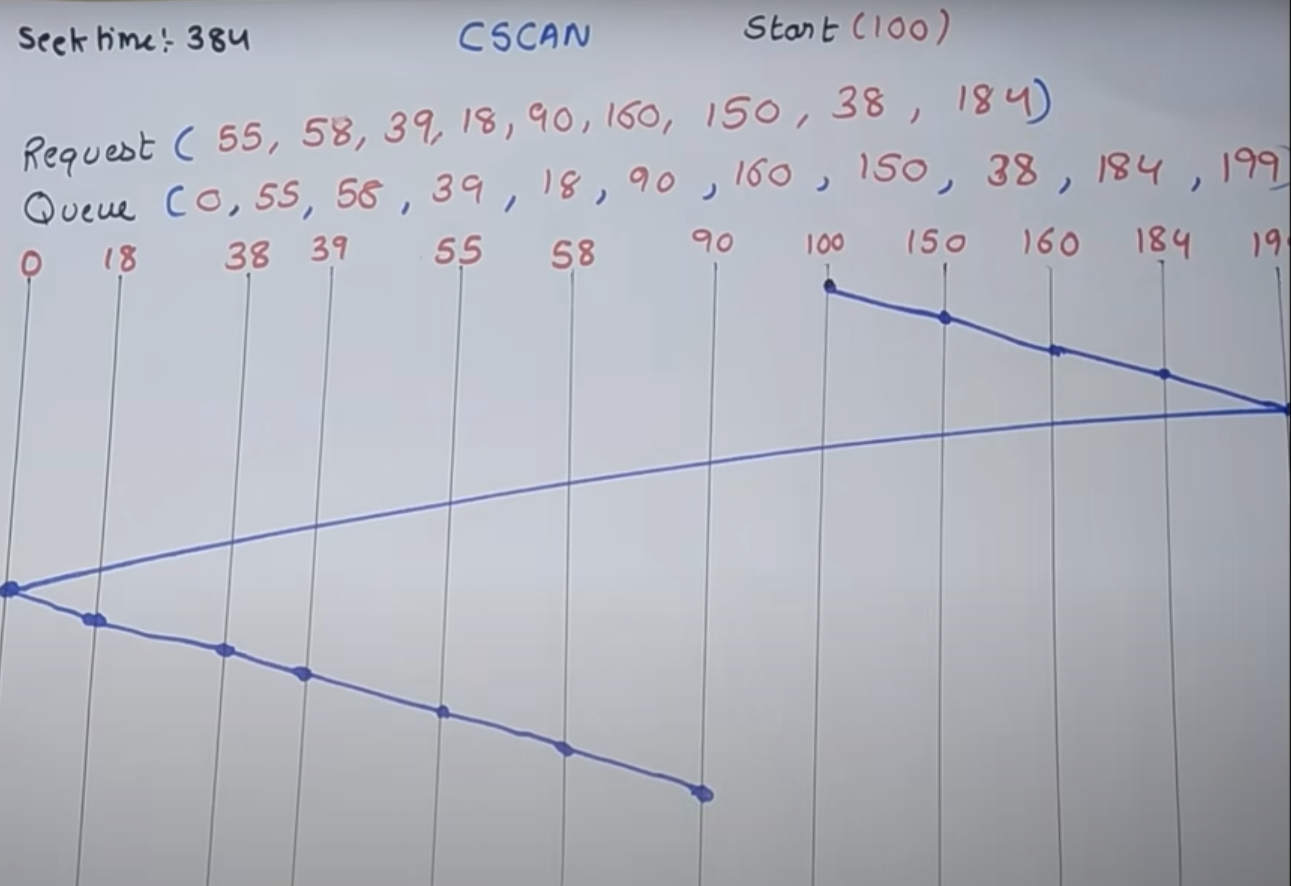 Seek time:- 384 CSCAN Start (100)
Request ( 55, 58, 39, 18, 90, 160, 150, 38, 184)
Queue (0, 55, 58, 39, 18, 90, 160, 150, 38, 184, 199)
0 18 38 39 55 58 90 100 150 160 184 19